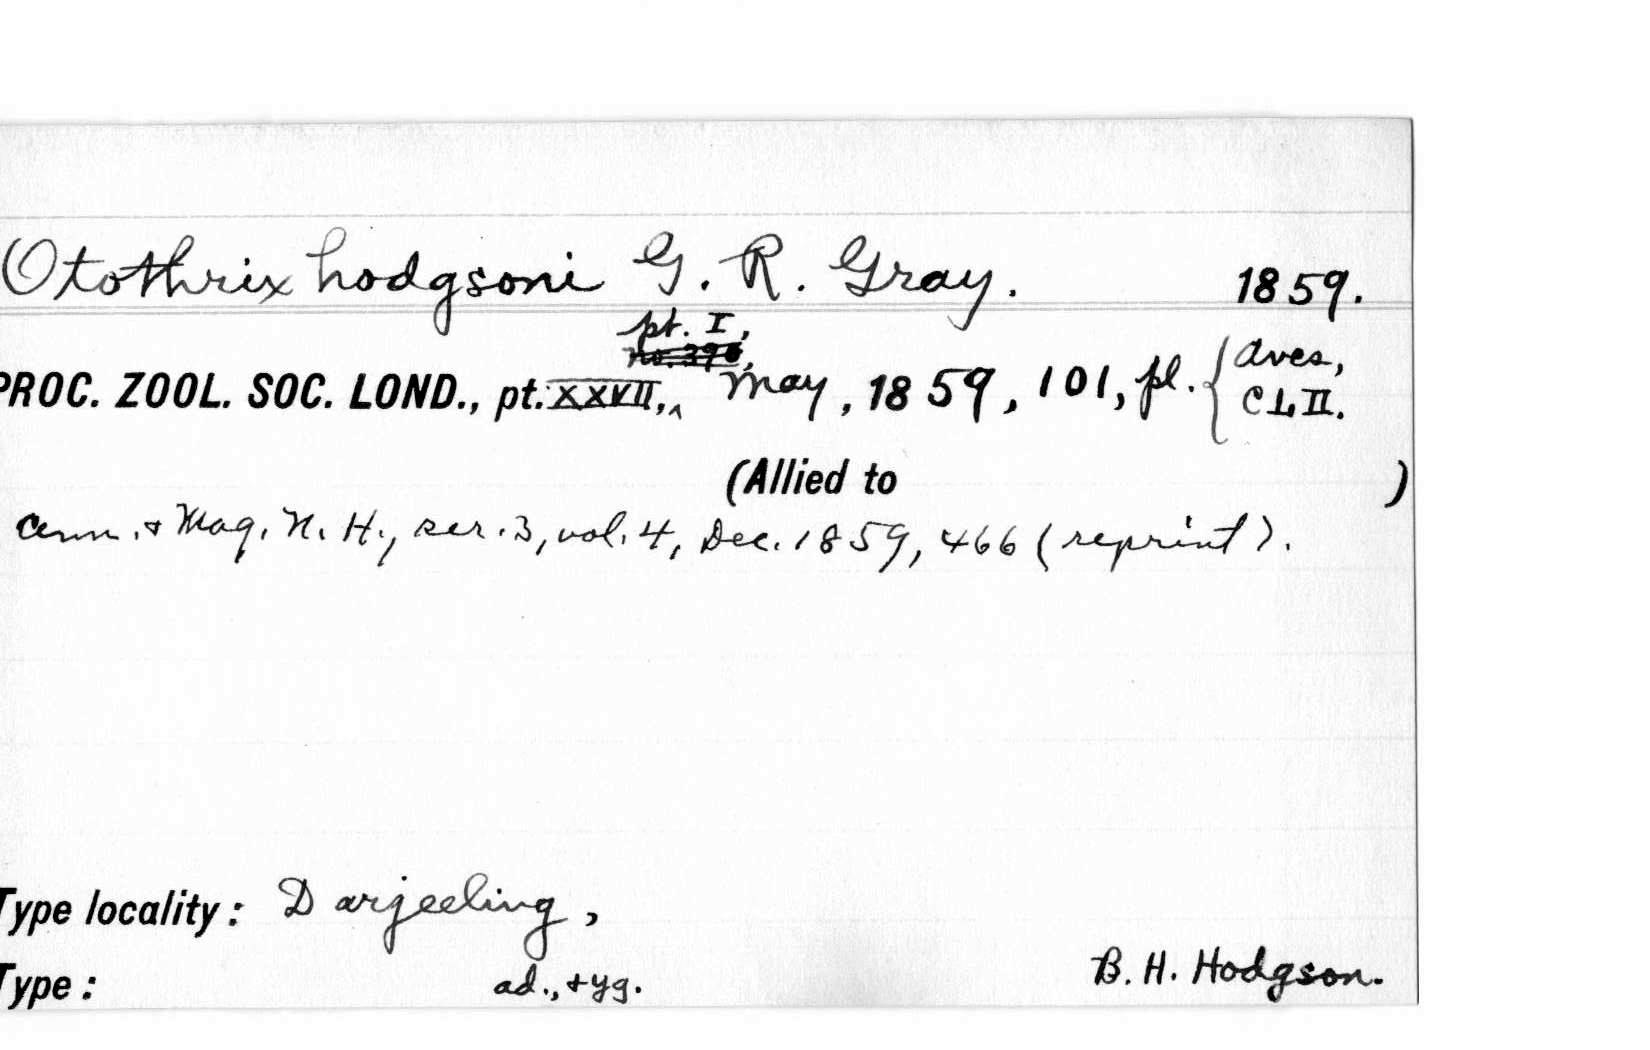 Otothrix hodgsoni G. R. Gray. 1859.
pt. I,
PROC. ZOOL. SOC. LOND., pt. XXVII, ^ May, 1859, 101, pl. { Aves, CLII.
(Allied to )
Ann. & Mag. N. H., ser. 3, vol. 4, Dec. 1859, 466 (reprint).
Type locality: Darjeeling,
Type: ad., + yg. B. H. Hodgson.